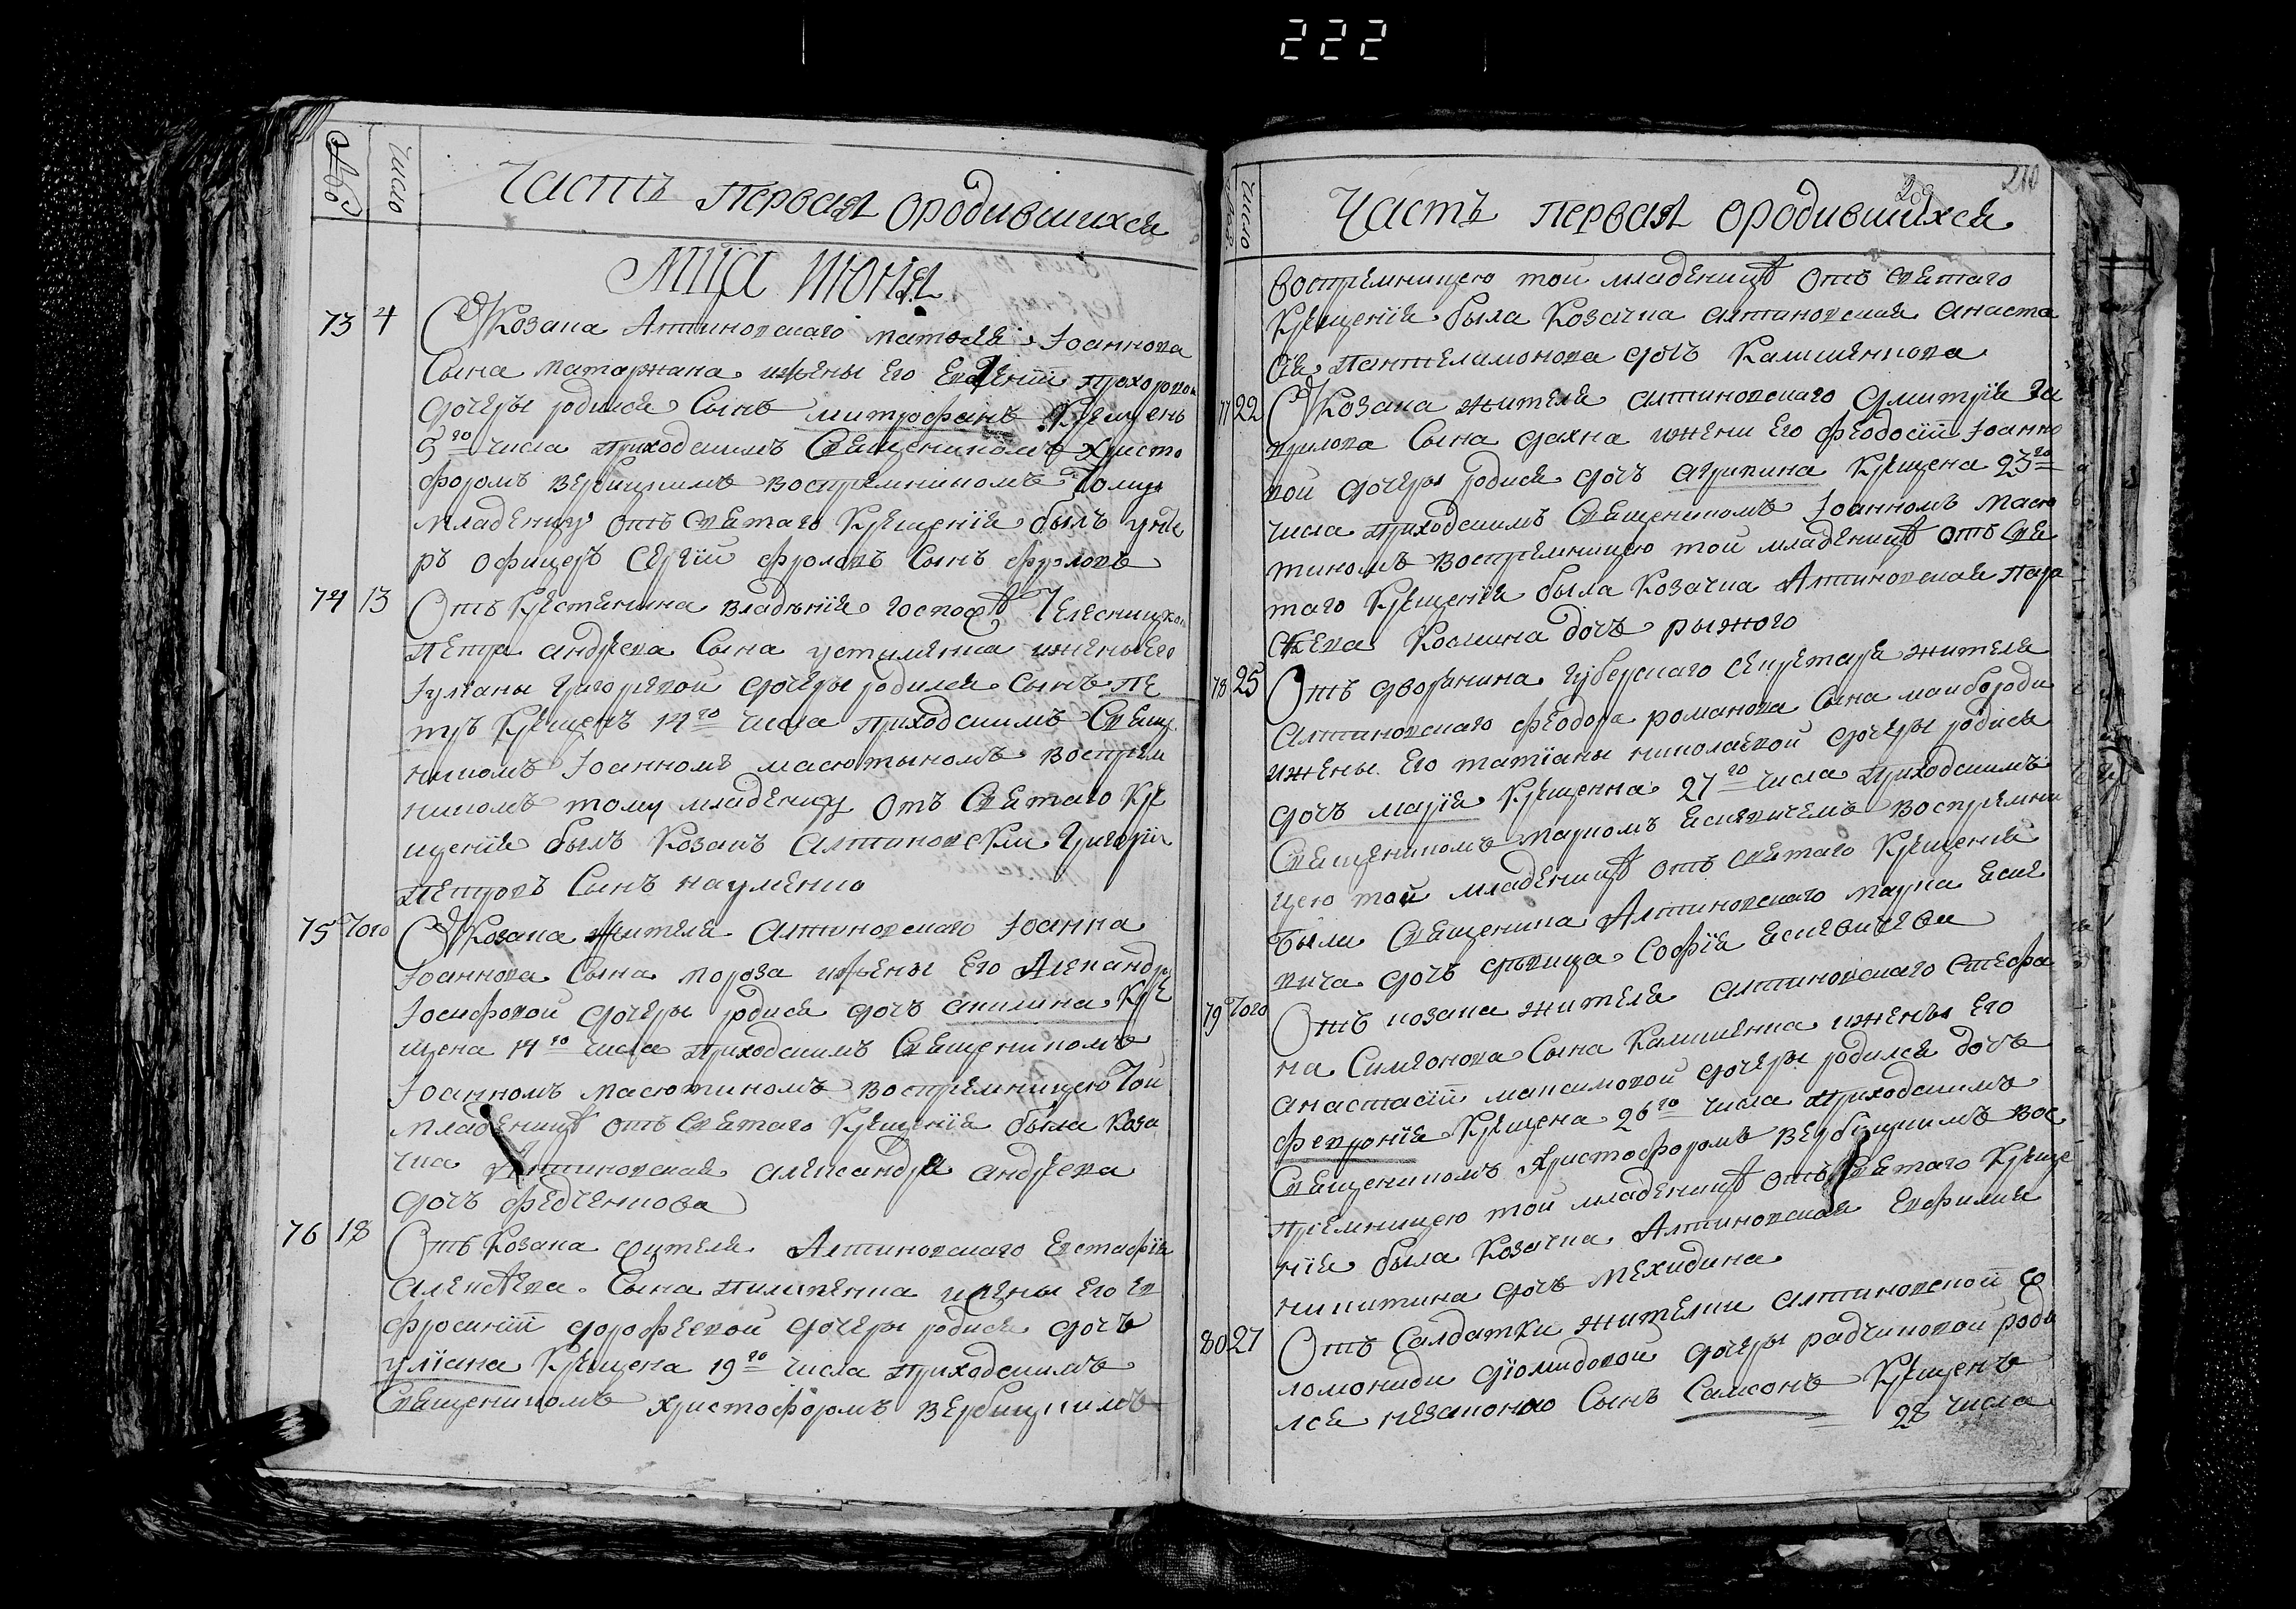 222
№
Число
Часть первая ородившихся
Мца Июня
73 4
От Козака Алтиновскаго матвея Іоаннова
Сына Матаржана ижены Его Евгеніи прохорово
дочеры родился Сынъ митрофанъ Крещенъ
5го числа приходскимъ Священикомъ Христо
форомъ вербицкимъ воспремникомъ Тому
Младенцу отъ Святаго Крещенія былъ унде
ръ офицеръ Сергій фроловъ Сынъ фроловъ
74 13
Отъ Крестянина владенія госпожѣ Телесницкои
петра андреева Сына устименка иженыего
Іуліаны григоревой дочеры родился Сынъ пе
тръ Крещенъ 14го числа приходскимъ Свящ
никомъ Іоанномъ масютыномъ воспрем
никомъ тому младенцу отъ Святаго Кре
щенія былъ Козакъ алтиновски григори
петровъ Сынъ науменко
75 Того
От Козака жителя алтиновскаго Іоанна
Іоаннова Сына мороза ижены Его Алекандры
Іосифовой дочеры родися дочь акилина Кре
щена 14го числа приходскимъ Священикомъ
Іоанномъ масютиномъ воспремницею Той
младеницѣ отъ Святаго Крещенія была Коза
чка Алтиновская александра андреева
дочь федченкова
76 18
Отъ Козака жителя Алтиновскаго Евстафія
алексѣева Сына пилипенка ижены Его Ев
фросиніи дорофеевой дочеры родися дочь
уліана Крещена 19го числа приходскимъ
Священикомъ христофоромъ вербицкимъ
209 210
Число
Часть первая ородившихся
воспремницею той младеницѣ отъ святаго
Крещенія была Козачка алтиновская анаста
сія пантелимонова дочь Калишенкова
77 22
От Козака жителя алтиновскаго дмитрія Га
врилова Сына дахна ижени Его феодосіи Іоанно
вой дочеры родися дочь агрипина Крещена 23го
числа приходскимъ Священикомъ Іоанномъ масю
тиномъ воспремницею той младеницѣ отъ Свя
таго Крещенія была Козачка Алтиновская пара
скева Космина дочь рыжого
78 25
Отъ дворянина губерскаго Секретаря жителя
алтиновскаго феодора романова Сына маибороди
ижены Его татіаны николаевой дочеры родися
дочь марія Крещенна 27го числа приходскимъ
Священикомъ маркомъ Есиевичемъ воспремни
цею той младеницѣ отъ святаго Крещеня
была Священика Алтиновскаго марка Есие
вича дочь дѣвица Софія Есиевичева
79 Того
Отъ козака жителя алтиновскаго Стефа
на Симеонова Сына Калишенка иженъы Его
анастасіи максимовой дочеры родился дочь
февронія Крещена 26го числа приходскимъ
Священикомъ Христофоромъ вербицкимъ вос
пріемницею той младеницѣ отъ Святаго Креще
нія была Козачка Алтиновская Евфимия
никитина дочь Мехидина
80 27
Отъ Салдатки жителки алтиновской со
ломониди діомидовой дочеры радчиковой роди
лся незаконно Сынъ Самсонъ Крещенъ
28 числа